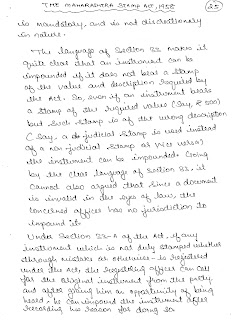 THE MAHARASHTRA STAMP ACT, 1958 25
is mandatory, and is not discretionary
in nature.
"The language of Section 33 makes it
quite clear that an instrument can be
impounded if it does not bear a stamp
of the value and description required by
the Act. So, even if an instrument bears
a stamp of the required value (Say, ₹ 500)
but such stamp is of the wrong description
(Say, a judicial stamp is used instead
of a non judicial stamp or vice versa)
the instrument can be impounded. Going
by the clear language of Section 33, it
cannot also argued that since a document
is invalid in the eyes of law, the
concerned officer has no jurisdiction to
impound it.
Under Section 33-A of the Act, if any
instrument which is not duly stamped whether
through mistake or otherwise is registered
under the Act, the registering officer can call
for the original instrument from the party
and after giving him an opportunity of being
heard. he can impound the instrument after
recording his reason for doing so.